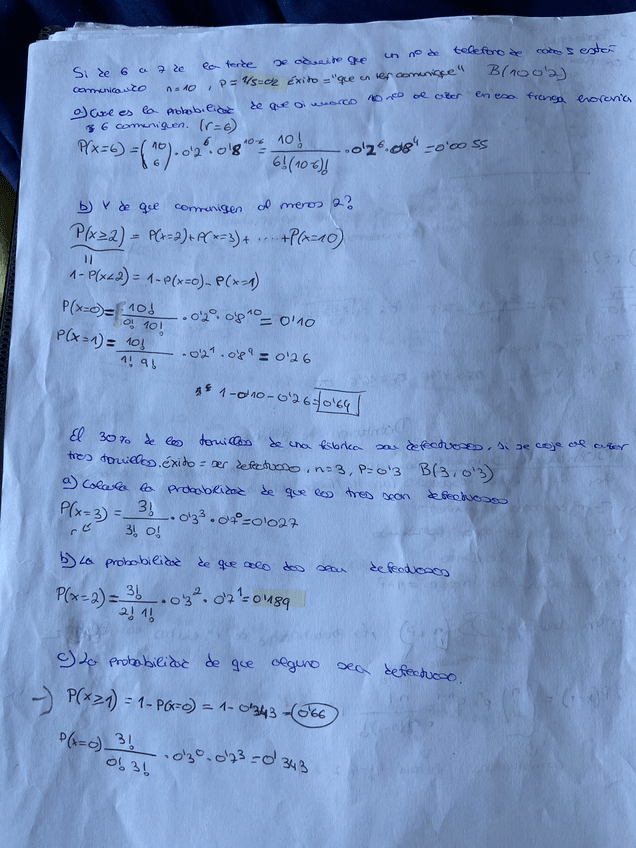 Si de 6 a 7 de la tarde se admite que un nº de telefono de cada 5 está
comunicando n=10 , P= 1/5=0'2 éxito = "que en ver comunique" B(10 0'2)
a) Cual es la probabilidad de que si marco 10 nºs al azar en esa franja horaria
6 comuniquen. (r=6)
P(x=6) = (10 6) · 0'2⁶ · 0'8¹⁰⁻⁶ = 10! / 6!(10-6)! · 0'2⁶ · 0'8⁴ = 0'0055
b) Y de que comuniquen al menos 2?
P(x≥2) = P(x=2)+P(x=3)+ ..... +P(x=10)
||
1-P(x<2) = 1-P(x=0)-P(x=1)
P(x=0) = 10! / 0! 10! · 0'2⁰ · 0'8¹⁰ = 0'10
P(x=1) = 10! / 1! 9! · 0'2¹ · 0'8⁹ = 0'26
1-0'10-0'26=0'64
El 30% de los tornillos de una fabrica son defectuosos. Si se coje al azar
tres tornillos. éxito = ser defectuoso, n=3, P=0'3 B(3,0'3)
a) Calcula la probabilidad de que los tres sean defectuosos
P(x=3) = 3! / 3! 0! · 0'3³ · 0'7⁰=0'027
r
b) La probabilidad de que solo dos sean defectuosos
P(x=2) = 3! / 2! 1! · 0'3² · 0'7¹=0'189
c) La probabilidad de que alguno sea defectuoso.
→ P(x≥1) = 1-P(x=0) = 1-0'343 = 0'66
P(x=0) 3! / 0! 3! · 0'3⁰ · 0'7³ = 0'343